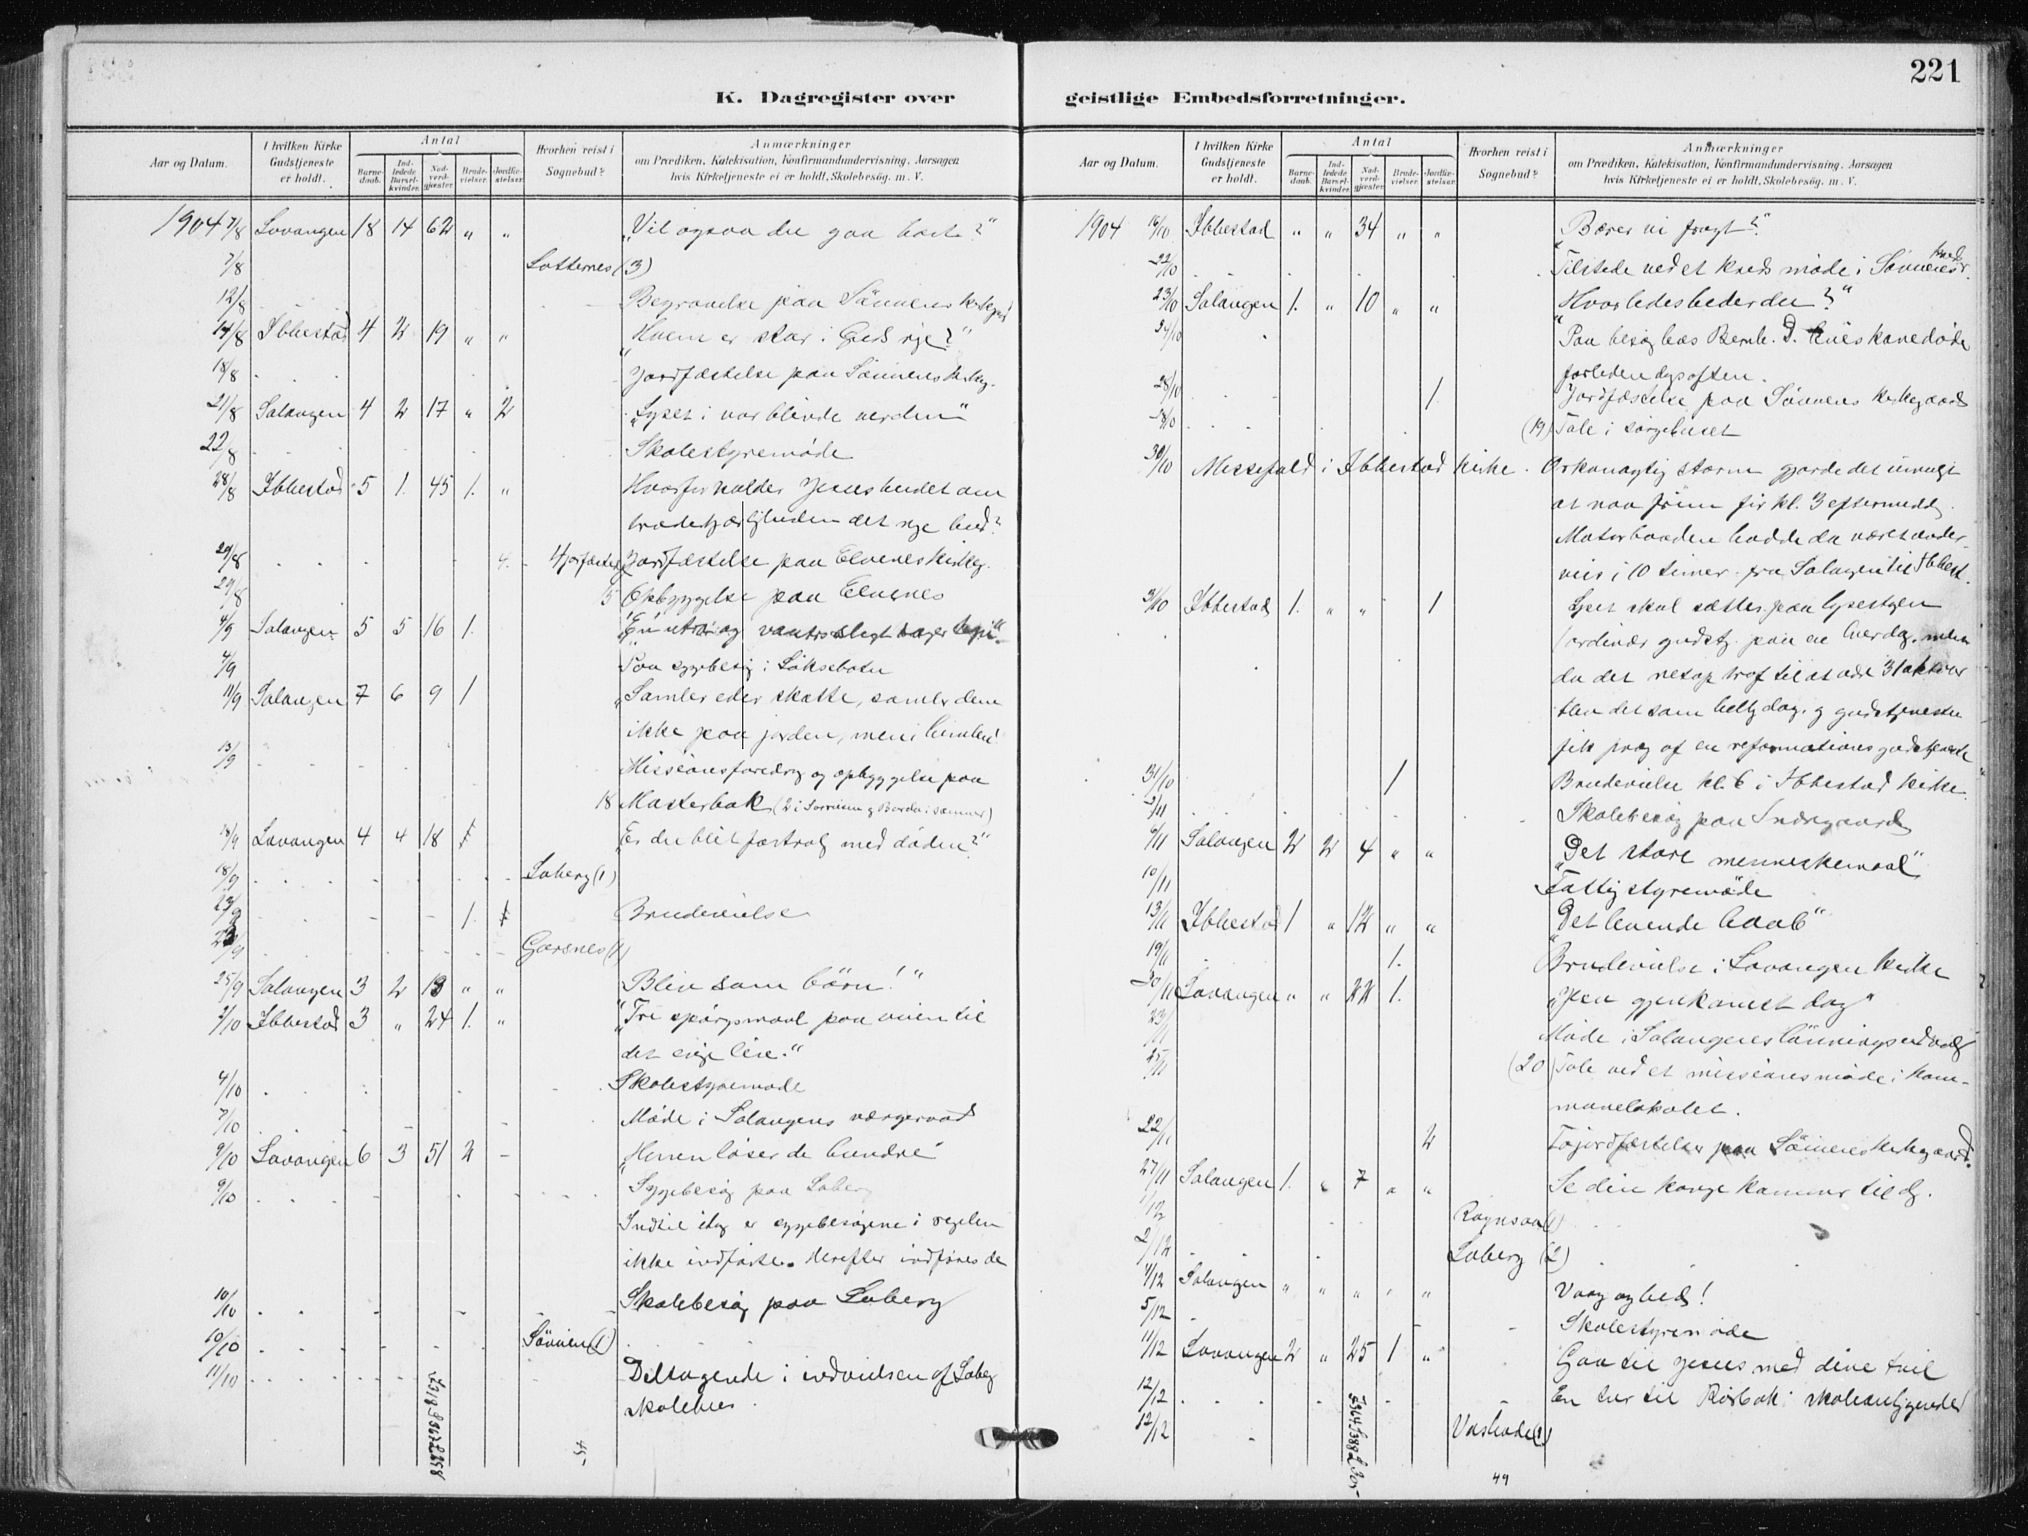 221
K. Dagregister over geistlige Embedsforretninger.
Aar og Datum.
I hvilken Kirke Gudstjeneste er holdt.
Antal
Barnedaab.
Indledede Barselkvinder.
Nadverdgjæster.
Brudevielser.
Jordfæstelser.
Hvorhen reist i Sognebud?
Anmærkninger
om Prædiken, Katekisation, Konfirmandundervisning, Aarsagen
hvis Kirketjeneste ei er holdt, Skolebesøg, m. V.
1904 7/8 Lavangen 18 14 62 " " "Vil ogsaa du gaa bort?"
7/8 (3)
12/8 Begravelse paa Sövveens kirkegaard
14/8 Ibbestad 4 2 19 " " "Hvem er stor i Guds rige?"
18/8 Jordfæstelse paa Sövveens kirkeg.
21/8 Salangen 4 2 17 " 2 "Lyset i vor blinde verden"
22/8 Skolestyremöde
28/8 Ibbestad 5 1. 45 1. " Hvorfor kalder Jesus budet om
broderkjærligheden det nye bud?
29/8 4 Jordfæstelse paa Elvenes kirkeg.
29/8 5 Opbyggelse paa Elvenes
4/9 Salangen 5 5 16 1.
4/9 Paa sygebesög i
11/9 Salangen 7 6 9 1 "Samler eder skatte, samler dem
ikke paa jorden, men i himlen"
13/9 Missionsforedrag og opbyggelse paa
18 Masterbak
18/9 Lavangen 4 4 18 1 Er du blit fortrolig med döden?"
18/9 Soberg (1)
1. Brudevielse
Garsnes (1)
25/9 Salangen 3 2 13 " " "Bliv som börn!"
2/10 Ibbestad 3 " 24 1. " "Tre spörgsmaal paa veien til
det evige live."
4/10 Skolestyremöde
7/10 Möde i Salangens værgeraad
9/10 Lavangen 6 3 51 2 - "Herren löser de bundne"
9/10 Sygebesög paa Soberg
Indtil idag er sygebesögene i regelen
ikke indförte. Herefter indföres de
10/10 Skolebesög paa Soberg
10/10 Sövveen (1)
11/10 Deltagende i indvielsen af Soberg
skolehus.
45
Aar og Datum.
I hvilken Kirke Gudstjeneste er holdt.
Antal
Barnedaab.
Indledede Barselkvinder.
Nadverdgjæster.
Brudevielser.
Jordfæstelser.
Hvorhen reist i Sognebud?
Anmærkninger
om Prædiken, Katekisation, Konfirmandundervisning, Aarsagen
hvis Kirketjeneste ei er holdt, Skolebesøg, m. V.
1904 16/10 Ibbestad " " 34 " " "Bærer vi frugt?"
22/10 Tilstede ved et kreds möde i
23/10 Salangen 1. " 10 " " "Hvorledes beder du?"
24/10 Paa besög hos Bernh. D. kone döde
forleden dags aften.
28/10 1 Jordfæstelse paa Sövveens kirkegaard
28/10 (19) Tale i sörgehuset
30/10 Messefald i Ibbestad kirke. Orkanagtig storm gjorde det umulig
at naa frem för kl. 3 eftermiddag.
Motorbaaden hadde da været underveis
i 10 timer fra Salangen til Ibbest.
31/10 Ibbestad 1. " " 1 Lyset skal sættes paa lysestagen
(ordinær gudstj. paa en hverdag, men
da det netop traf til at være 31 oktober
blev det som helligdag, og gudstjenesten
fik præg af en reformationsgudstjeneste
31/10 1 Brudevielse kl. 6 i Ibbestad kirke.
2/11 Skolebesög paa
6/11 Salangen 2 2 4 " " "Det store menneskemaal"
10/11 Fattigstyremöde
13/11 Ibbestad 1 " 12 " " "Det levende haab"
19/11 1. Brudevielse i Lavangen kirke
20/11 Lavangen " " 22 1. "Igjen gjenkomst dag"
23/11 Möde i Salangens
25/11 (20) Tale ved et missionsmöde i kommunelokalet.
22/11 2 To jordfæstelser paa Sövveens kirkegaard.
27/11 Salangen 1. " 7 " " Se din konge kommer til dig.
1/12 (1)
2/12 Soberg (2)
4/12 Salangen " " " " " Vaag og bed!
5/12 Skolestyremöde
11/12 Lavangen 2 " 25 1 " Gaa til Jesus med dine tvil
12/12 En tur til skoleanliggender
12/12 (1)
49